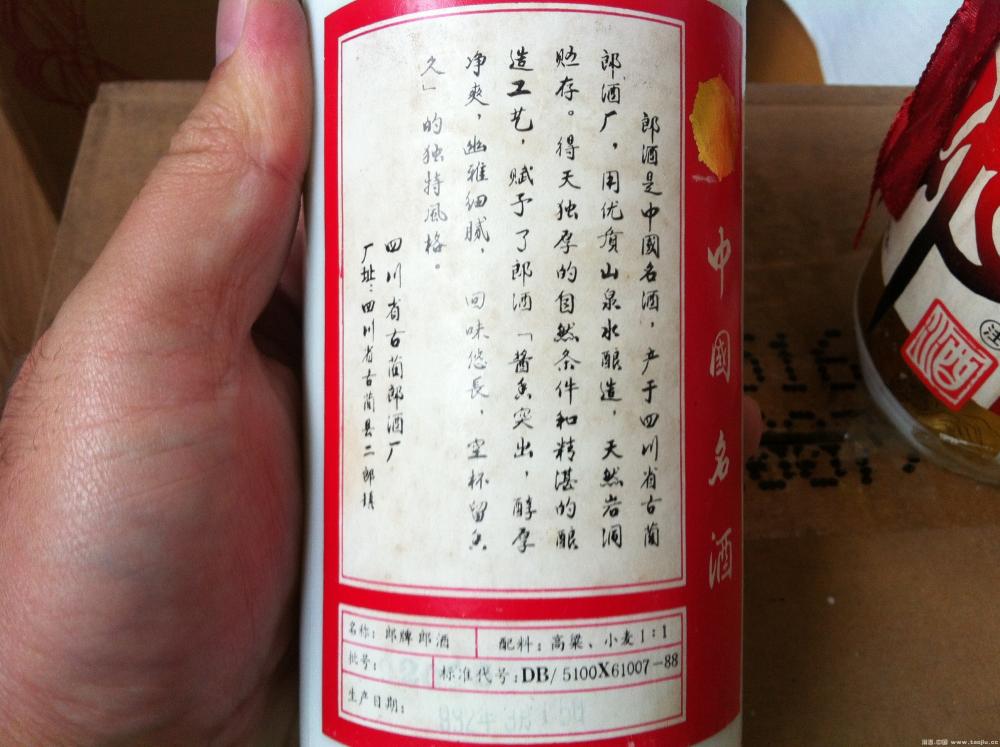 郎酒是中國名酒，产于四川省古蔺
郎酒厂，用优质山泉水酿造，天然岩洞
贮存。得天独厚的自然条件和精湛的酿
造工艺，赋予了郎酒「酱香突出，醇厚
净爽，幽雅细腻，回味悠長，空杯留香
久」的独特風格。
四川省古蔺郎酒厂
厂址：四川省古蔺县二郎镇
中國名酒
名称：郎牌郎酒
配料：高粱、小麦1：1
批号：
标准代号：DB/5100X61007-88
生产日期：
酒
注
www.taojiu.cc